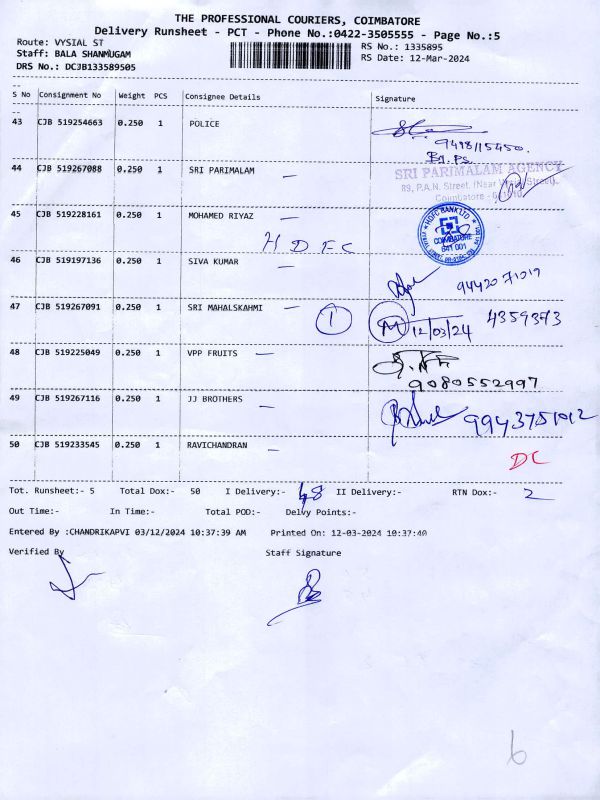 THE PROFESSIONAL COURIERS, COIMBATORE
Delivery Runsheet - PCT - Phone No.:0422-3505555 - Page No.:5
Route: VYSIAL ST
Staff: BALA SHANMUGAM
DRS No.: DCJB133589505
RS No.: 1335895
RS Date: 12-Mar-2024
S No Consignment No Weight PCS Consignee Details Signature
43 CJB 519254663 0.250 1 POLICE
44 CJB 519267088 0.250 1 SRI PARIMALAM —
SRI PARIMALAM AGENCY
89, P.A.N. Street, (Near Street),
Coimbatore -
45 CJB 519228161 0.250 1 MOHAMED RIYAZ —
HDFC
HDFC BANK LTD
COIMBATORE
641 001
46 CJB 519197136 0.250 1 SIVA KUMAR —
47 CJB 519267091 0.250 1 SRI MAHALSKAHMI — 1 M 12/03/24 4359373
48 CJB 519225049 0.250 1 VPP FRUITS —
9080552997
49 CJB 519267116 0.250 1 JJ BROTHERS — 9943751012
50 CJB 519233545 0.250 1 RAVICHANDRAN — DC
Tot. Runsheet:- 5 Total Dox:- 50 I Delivery:- 48 II Delivery:- RTN Dox:- 2
Out Time:- In Time:- Total POD:- Delvy Points:-
Entered By :CHANDRIKAPVI 03/12/2024 10:37:39 AM Printed On: 12-03-2024 10:37:40
Verified By Staff Signature
6